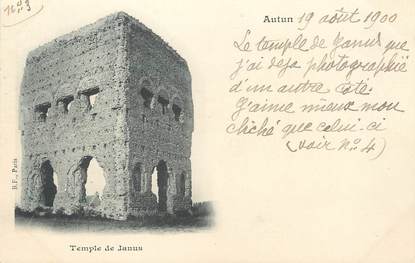 nº 3
Autun 19 août 1900
Le temple de Janus que
j'ai deja photographié
d'un autre côté.
J'aime mieux mon
cliché que celui-ci
(voir nº 4)
B.F., Paris
Temple de Janus